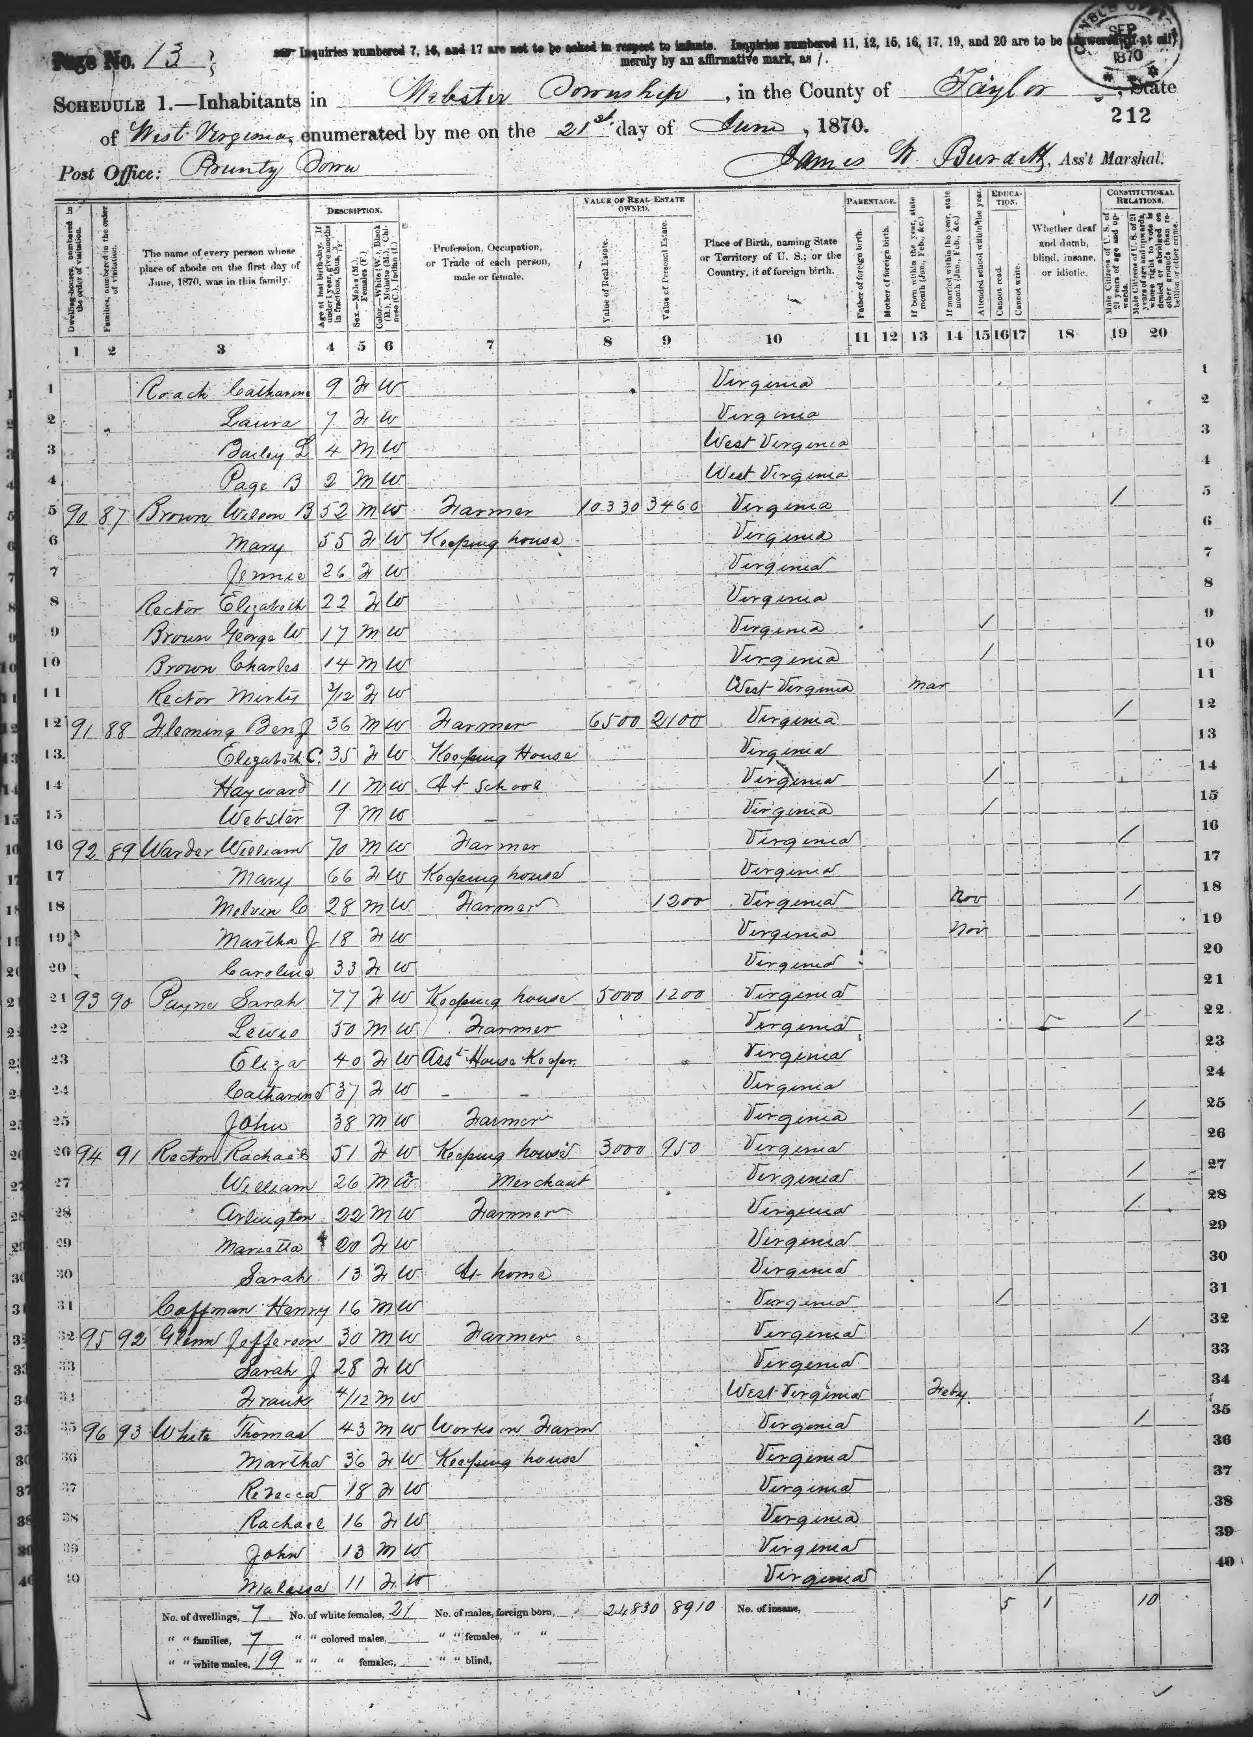 Page No. 13
Inquiries numbered 7, 16, and 17 are not to be asked in respect to infants. Inquiries numbered 11, 12, 15, 16, 17, 19, and 20 are to be answered (if at all)
merely by an affirmative mark, as /.
SEP 1870
SCHEDULE 1.—Inhabitants in Webster Township, in the County of Taylor, State
of West Virginia, enumerated by me on the 21st day of June, 1870.
212
Post Office: Prunty Town
James W Burdett, Ass't Marshal.
DESCRIPTION.
VALUE OF REAL ESTATE OWNED.
PARENTAGE.
EDUCATION.
CONSTITUTIONAL RELATIONS.
Dwelling-houses, numbered in the order of visitation.
Families, numbered in the order of visitation.
The name of every person whose place of abode on the first day of June, 1870, was in this family.
Age at last birth-day. If under 1 year, give months in fractions, thus, 3/12
Sex.—Males (M.), Females (F.)
Color.—White (W.), Black (B.), Mulatto (M.), Chinese (C.), Indian (I.)
Profession, Occupation, or Trade of each person, male or female.
Value of Real Estate.
Value of Personal Estate.
Place of Birth, naming State or Territory of U. S.; or the Country, if of foreign birth.
Father of foreign birth.
Mother of foreign birth.
If born within the year, state month (Jan., Feb., &c.)
If married within the year, state month (Jan., Feb., &c.)
Attended school within the year.
Cannot read.
Cannot write.
Whether deaf and dumb, blind, insane, or idiotic.
Male Citizens of U. S. of 21 years of age and upwards.
Male Citizens of U. S. of 21 years of age and upwards, whose right to vote is denied or abridged on other grounds than rebellion or other crime.
1 2 3 4 5 6 7 8 9 10 11 12 13 14 15 16 17 18 19 20
1 Roach Catharine 9 F W Virginia 1
2 Laura 7 F W Virginia 2
3 Bailey L 4 M W West Virginia 3
4 Page B 2 M W West Virginia 4
5 90 87 Brown Wilson B 52 M W Farmer 10330 3460 Virginia / 5
6 Mary 55 F W Keeping house Virginia 6
7 Jennie 26 F W Virginia 7
8 Rector Elizabeth 22 F W Virginia 8
9 Brown George W 17 M W Virginia / 9
10 Brown Charles 14 M W Virginia / 10
11 Rector 3/12 F W West Virginia Mar 11
12 91 88 Fleming Benj 36 M W Farmer 6500 2100 Virginia / 12
13 Elizabeth C. 35 F W Keeping House Virginia 13
14 Hayward 11 M W At School Virginia / 14
15 Webster 9 M W — Virginia / 15
16 92 89 Warder William 70 M W Farmer Virginia / 16
17 Mary 66 F W Keeping house Virginia 17
18 Melvin C 28 M W Farmer 1200 Virginia Nov / 18
19 Martha J 18 F W Virginia Nov 19
20 Caroline 33 F W Virginia 20
21 93 90 Payne Sarah 77 F W Keeping house 5000 1200 Virginia 21
22 Lewis 50 M W Farmer Virginia / 22
23 Eliza 40 F W Asst House Keeper Virginia 23
24 Catharine 37 F W – – Virginia 24
25 John 38 M W Farmer Virginia / 25
26 94 91 Rector Rachael 51 F W Keeping house 3000 950 Virginia 26
27 William 26 M W Merchant Virginia / 27
28 Arlington 22 M W Farmer Virginia / 28
29 Marietta 20 F W Virginia 29
30 Sarah 13 F W At home Virginia 30
31 Coffman Henry 16 M W Virginia / 31
32 95 92 Glenn Jefferson 30 M W Farmer Virginia / 32
33 Sarah J 28 F W Virginia 33
34 Frank 4/12 M W West Virginia Feby 34
35 96 93 White Thomas 43 M W Works on Farm Virginia / 35
36 Martha 36 F W Keeping house Virginia 36
37 Rebecca 18 F W Virginia 37
38 Rachael 16 F W Virginia 38
39 John 13 M W Virginia 39
40 Malissa 11 F W Virginia / 40
No. of dwellings, 7 No. of white females, 21 No. of males, foreign born, 24830 8910 No. of insane, 5 1 10
" " families, 7 " " colored males, " " females, " "
" " white males, 19 " " " females, " " blind,